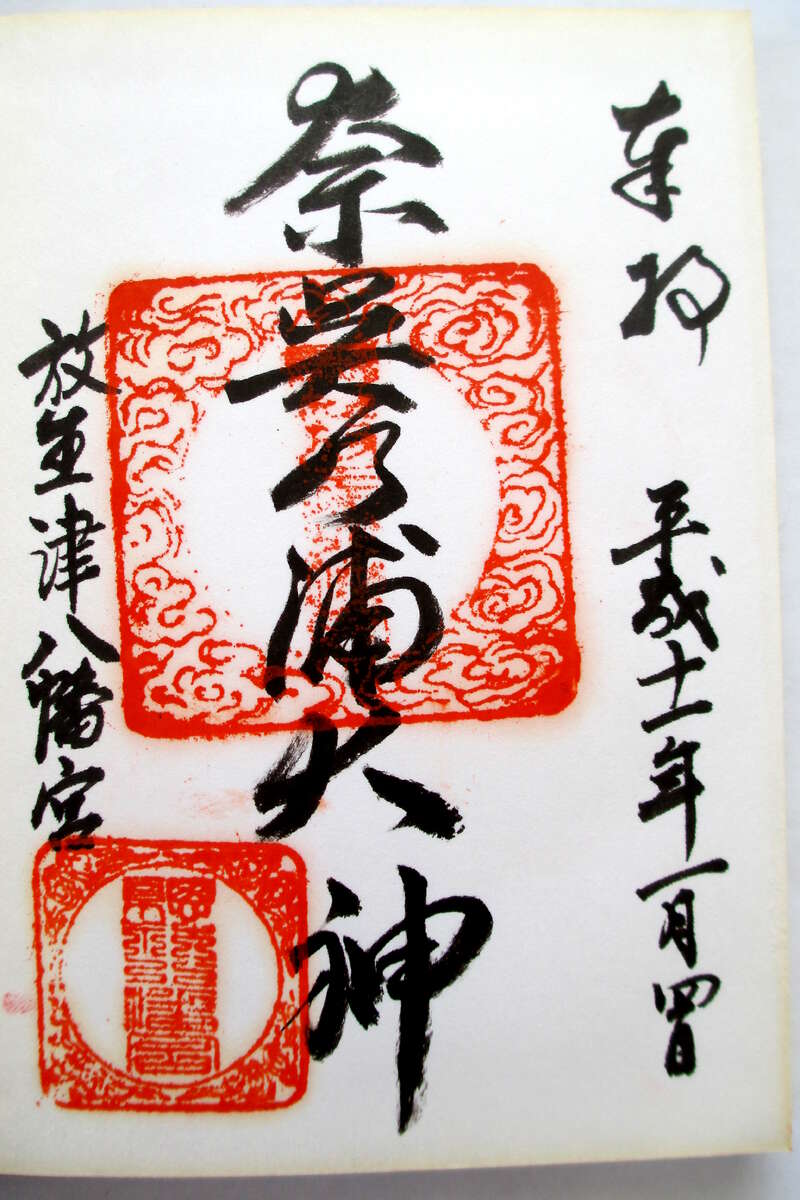 奉拝
平成十一年一月四日
奈呉乃浦大神
放生津八幡宮